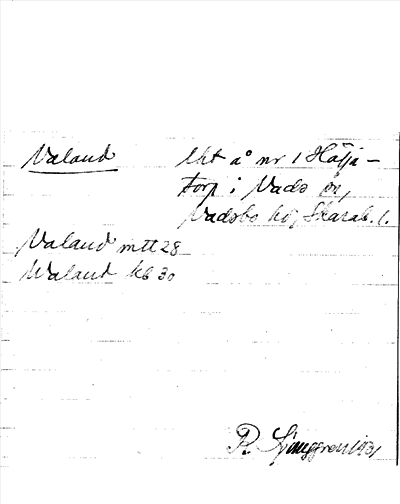 Valand lht å nr 1 Hätja-
torp i Vads sn,
Vadsbo hd, Skarab. l.
Valand mtt 28
Waland kb 30
R. Ljunggren 1931